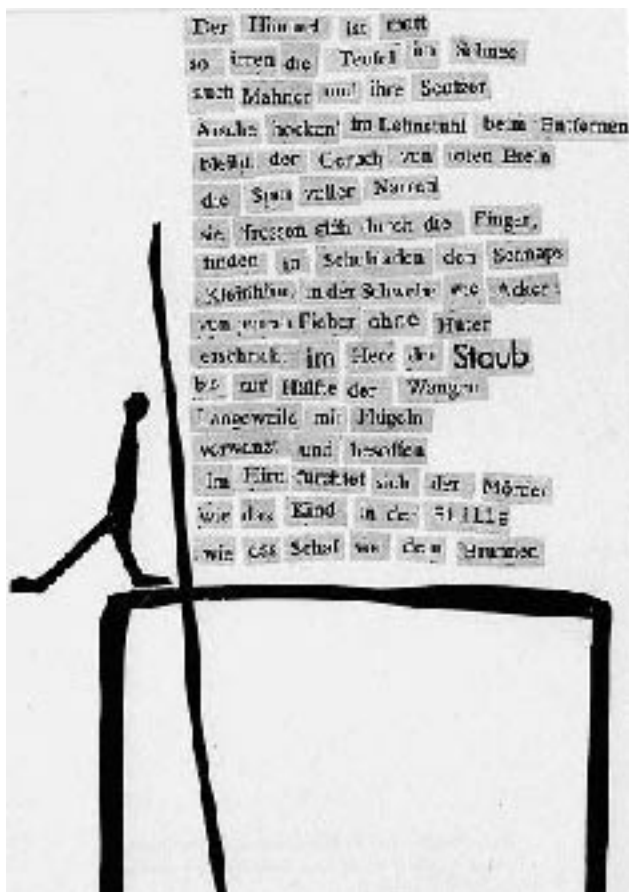 Der Himmel ist matt
so irren die Teufel im Schnee
auch Mahner und ihre Seufzer
hocken im Lehnstuhl beim Entfernen
bleibt der Geruch von toten
die Spur voller Narren
sie fressen sich durch die Finger,
finden in Schubladen den Schnaps
in der Schwebe wie Äcker
vom Fieber ohne Hüter
erschrickt im Herz der Staub
bis zur Hälfte der Wangen
Langeweile mit Flügeln
verwanzt und besoffen
Im Hirn fürchtet sich der Mörder
wie das Kind in der Stille
wie das Schaf vor dem Brunnen